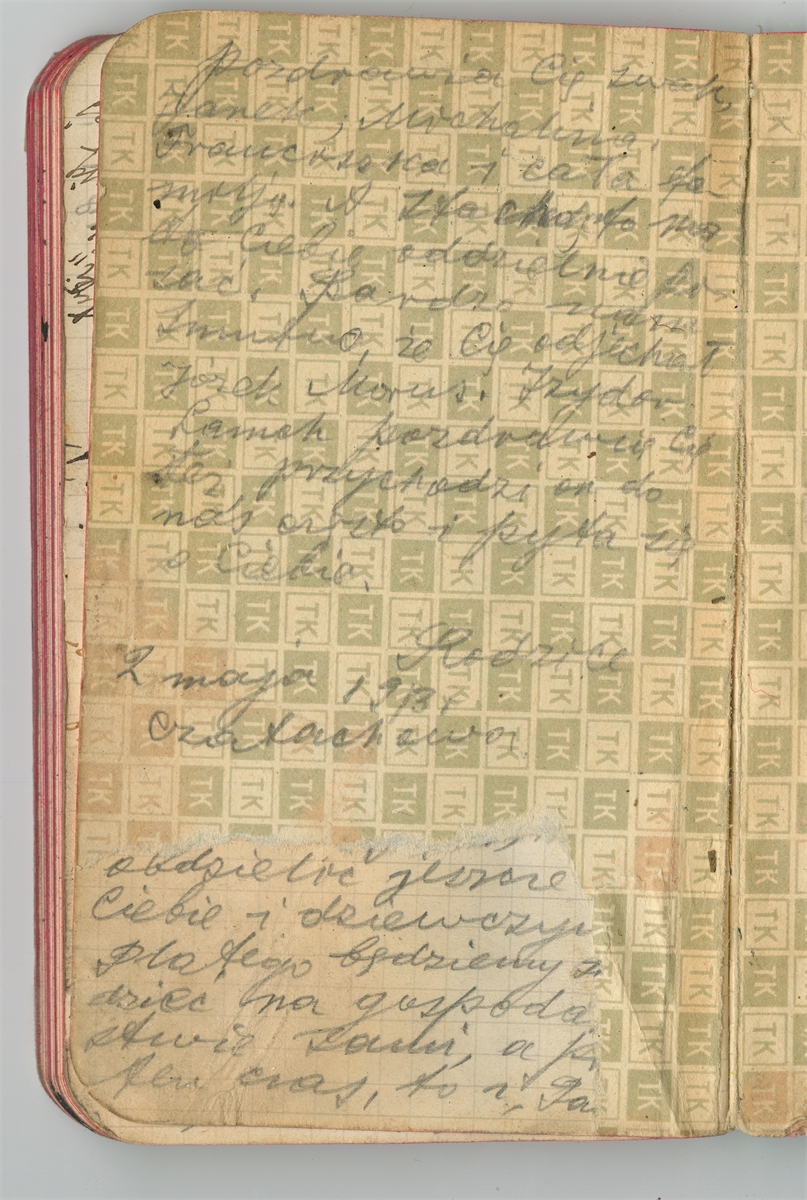 Pozdrawia Cię szwak,
Janek, Michalina,
Franciszka i cała fa-
mulja. A Stach to ma
do Ciebie oddzielnie pi-
sać. Bardzo nam
smutno, że Cię odjechał
Józek Morus. Izydor
Lamch pozdrawia Cię
też przychodzi on do
nas często i pyta się
o Ciebie.
Rodzice
2 maja 1937
Czatachowa
obdzielić jeszcze
Ciebie i dziewczyn
Dlatego będziemy
dzieć na gospoda
stwie sami, a
ten czas, to i